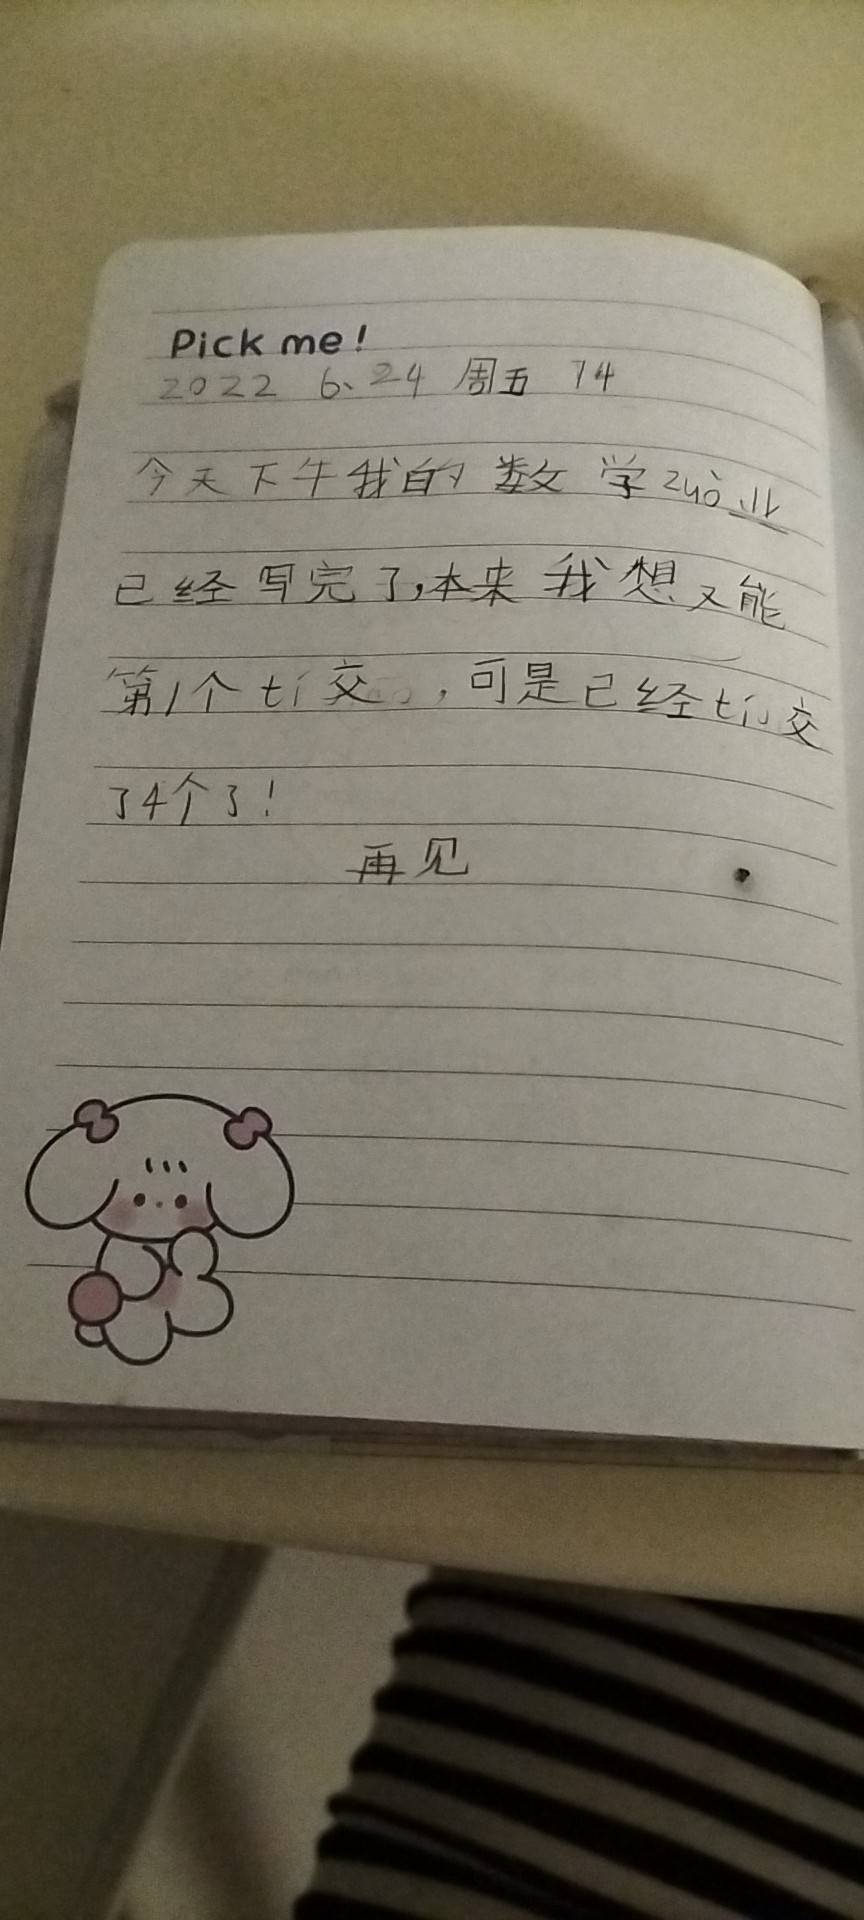 Pick me!
2022 6、24 周五 14
今天下午我的数学zuò业
已经写完了,本来我想又能
第1个tí交,可是已经tí交
了4个了!
再见